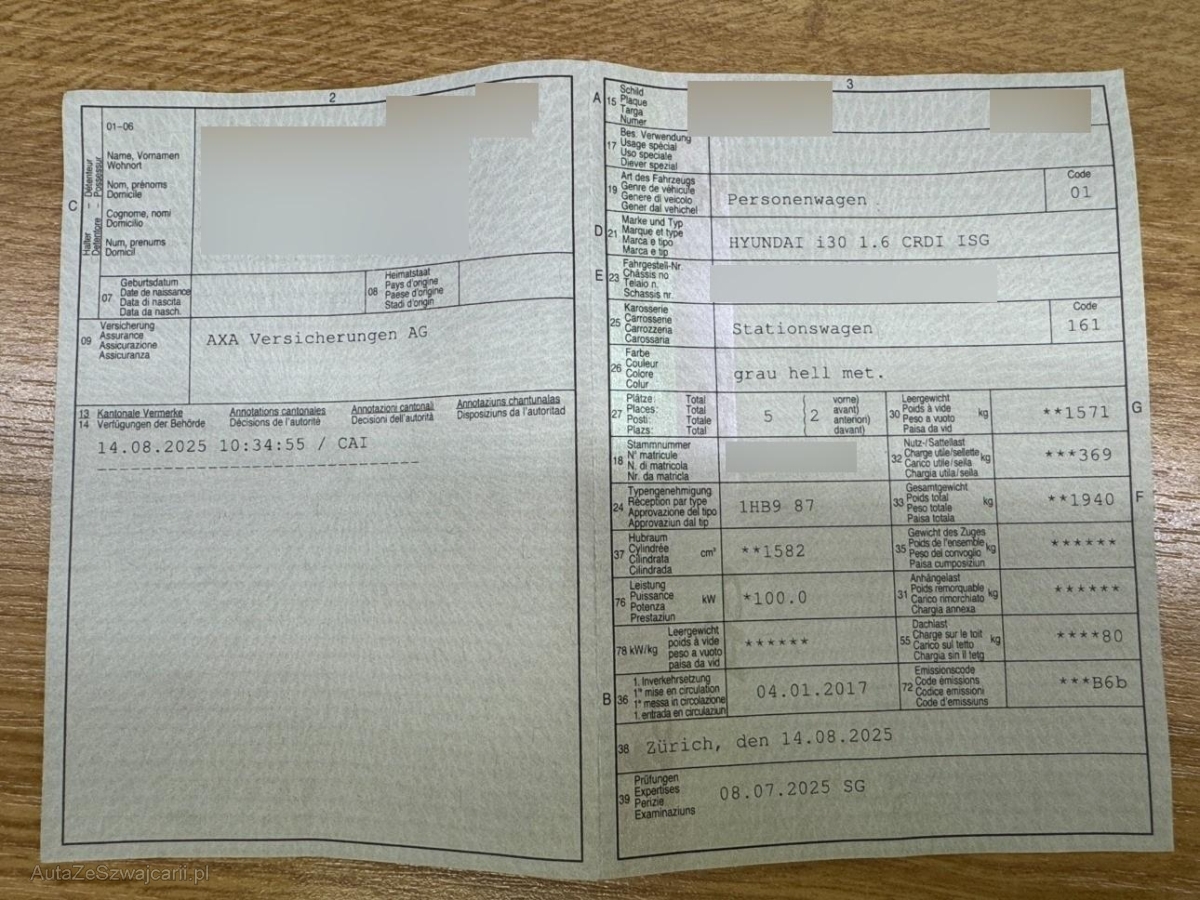 2
01-06
C
Halter - Détenteur
Detentore - Possessur
Name, Vornamen
Wohnort
Nom, prénoms
Domicile
Cognome, nomi
Domicilio
Num, prenums
Domicil
07
Geburtsdatum
Date de naissance
Data di nascita
Data da nasch.
08
Heimatstaat
Pays d'origine
Paese d'origine
Stadi d'origin
09
Versicherung
Assurance
Assicurazione
Assicuranza
AXA Versicherungen AG
13 Kantonale Vermerke Annotations cantonales Annotazioni cantonali Annotaziuns chantunalas
14 Verfügungen der Behörde Décisions de l'autorité Decisioni dell'autorità Disposiziuns da l'autoritad
14.08.2025 10:34:55 / CAI
--------------------------------
3
A 15
Schild
Plaque
Targa
Numer
17
Bes. Verwendung
Usage spécial
Uso speciale
Diever spezial
19
Art des Fahrzeugs
Genre de véhicule
Genere di veicolo
Gener dal vehichel
Personenwagen
Code
01
D 21
Marke und Typ
Marque et type
Marca e tipo
Marca e tip
HYUNDAI i30 1.6 CRDI ISG
E 23
Fahrgestell-Nr.
Châssis no
Telaio n.
Schassis nr.
25
Karosserie
Carrosserie
Carrozzeria
Carossaria
Stationswagen
Code
161
26
Farbe
Couleur
Colore
Colur
grau hell met.
27
Plätze: Total
Places: Total
Posti: Totale
Plazs: Total
5
2
vorne)
avant)
anteriori)
davant)
30
Leergewicht
Poids à vide
Peso a vuoto
Paisa da vid
kg
**1571
G
18
Stammnummer
N° matricule
N. di matricola
Nr. da matricla
32
Nutz-/Sattellast
Charge utile/sellette
Carico utile/sella
Chargia utila/sella
kg
***369
24
Typengenehmigung
Réception par type
Approvazione del tipo
Approvaziun dal tip
1HB9 87
33
Gesamtgewicht
Poids total
Peso totale
Paisa totala
kg
**1940
F
37
Hubraum
Cylindrée
Cilindrata
Cilindrada
cm³
**1582
35
Gewicht des Zuges
Poids de l'ensemble
Peso del convoglio
Paisa cumposiziun
kg
******
76
Leistung
Puissance
Potenza
Prestaziun
kW
*100.0
31
Anhängelast
Poids remorquable
Carico rimorchiato
Chargia annexa
kg
******
78 kW/kg
Leergewicht
poids à vide
peso a vuoto
paisa da vid
******
55
Dachlast
Charge sur le toit
Carico sul tetto
Chargia sin il tetg
kg
****80
B 36
1. Inverkehrsetzung
1re mise en circulation
1a messa in circolazione
1. entrada en circulaziun
04.01.2017
72
Emissionscode
Code émissions
Codice emissioni
Code d'emissiuns
***B6b
38 Zürich, den 14.08.2025
39
Prüfungen
Expertises
Perizie
Examinaziuns
08.07.2025 SG
AutaZeSzwajcarii.pl